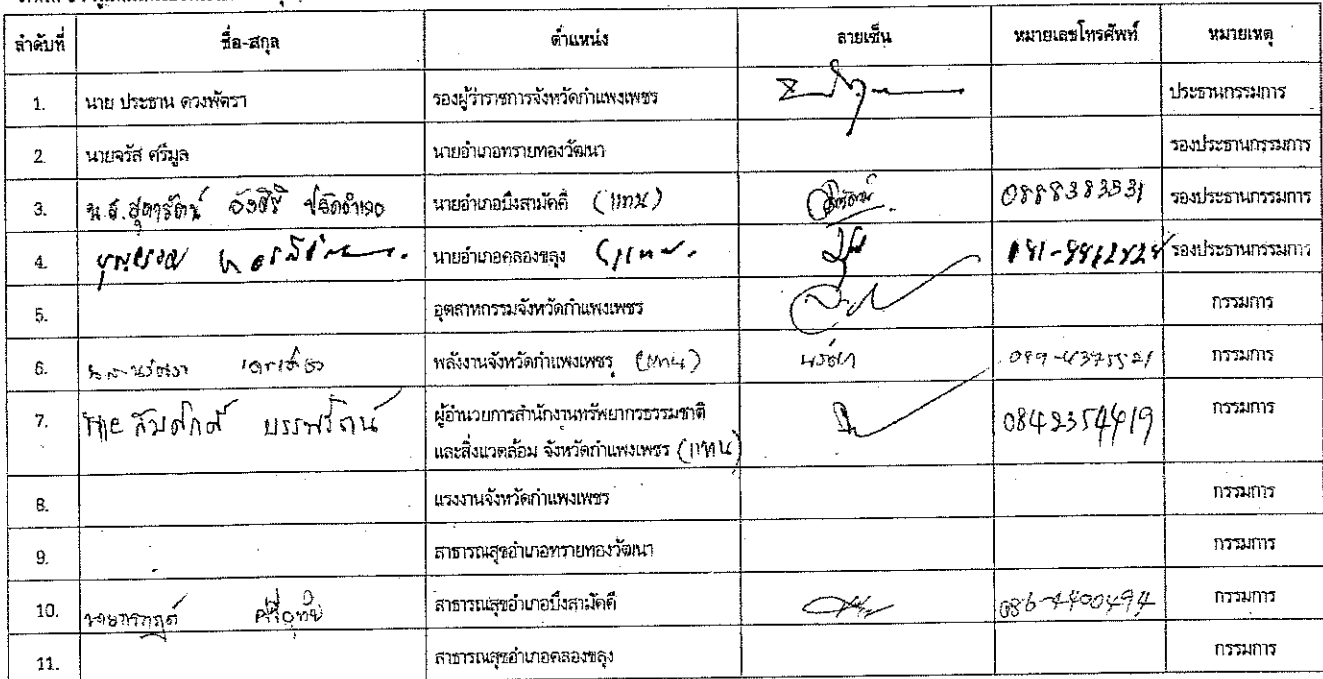 ลำดับที่ ชื่อ-สกุล ตำแหน่ง ลายเซ็น หมายเลขโทรศัพท์ หมายเหตุ
1. นาย ประธาน ดวงพัตรา รองผู้ว่าราชการจังหวัดกำแพงเพชร ประธานกรรมการ
2. นายจรัส ศรีมูล นายอำเภอทรายทองวัฒนา รองประธานกรรมการ
3. น.ส.สุดารัตน์ ปลัดอำเภอ นายอำเภอบึงสามัคคี (แทน) 0888383531 รองประธานกรรมการ
4. นายอำเภอคลองขลุง (แทน รองประธานกรรมการ
5. อุตสาหกรรมจังหวัดกำแพงเพชร กรรมการ
6. พลังงานจังหวัดกำแพงเพชร (แทน) กรรมการ
7. บรรพรัตน์ ผู้อำนวยการสำนักงานทรัพยากรธรรมชาติ 0842354419 กรรมการ
และสิ่งแวดล้อม จังหวัดกำแพงเพชร (แทน)
8. แรงงานจังหวัดกำแพงเพชร กรรมการ
9. สาธารณสุขอำเภอทรายทองวัฒนา กรรมการ
10. ศรีอุทัย สาธารณสุขอำเภอบึงสามัคคี 086-4400494 กรรมการ
11. สาธารณสุขอำเภอคลองขลุง กรรมการ